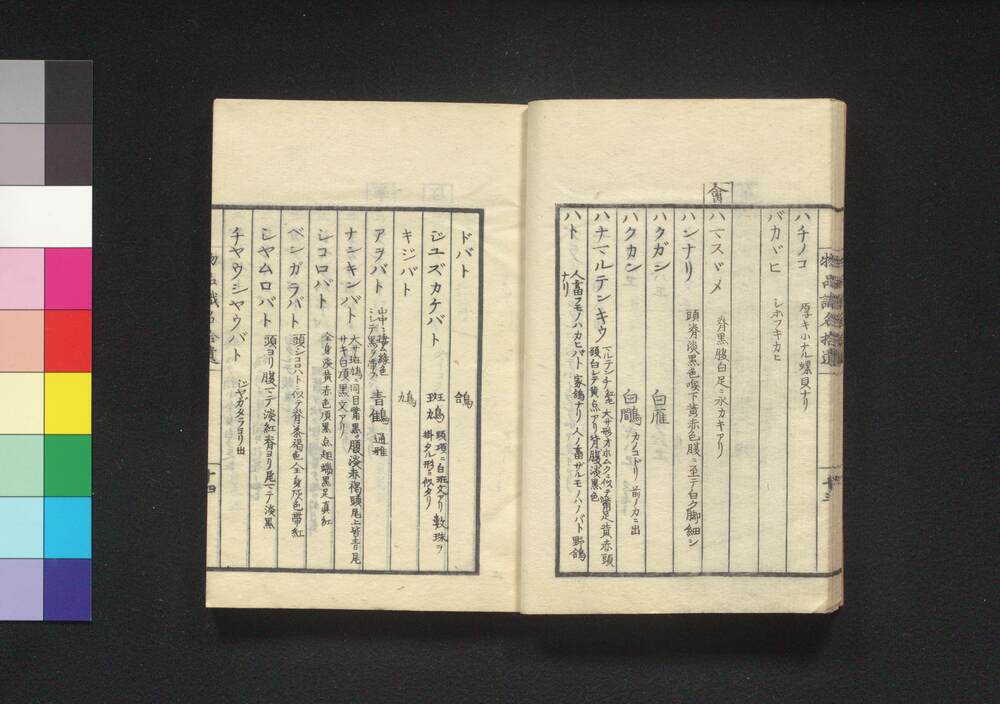 ハチノコ 厚キ小ナル螺貝ナリ
バカヾヒ シホフキカヒ
禽
ハマスヾメ 脊黒腹白足ニ水カキアリ
ハンナリ 頭脊淡黒色喉下黄赤色腹ニ至テ白ク脚細シ
ハクガン 白雁
ハクカン 白鷴 カノコドリ 前ノカニ出
ハナマルテンキウ 大サ形オホムクニ似テ觜足黄赤頭
頸白シテ黄点アリ背腹淡黒色
ハト 人ノ畜フモノハカヒバト 家鴿ナリ 人ノ畜ザルモノハノバト 野鴿
ナリ
十三
ドバト 鴿
ジユズカケバト 斑鳩 頸項ニ白斑文アリ數珠ヲ
掛タル形ニ似タリ
キジバト 鳩
アヲバト 山中ニ棲ム緑色
青䳡 通雅
ナンキンバト 大サ斑鳩ニ同目觜黒ク腹淡赤褐頭尾上皆青尾
サキ白項黒文アリ
シコロバト 全身淡黄赤色項黒点翅端黒足真紅
ベンガラバト 頭シコロバトニ似テ脊茶褐色全身灰色帶紅
シヤムロバト 頭ヨリ腹マテ淡紅脊ヨリ尾マテ淡黒
チヤウシヤウバト ジヤガタラヨリ出
物品識名拾遺
十四